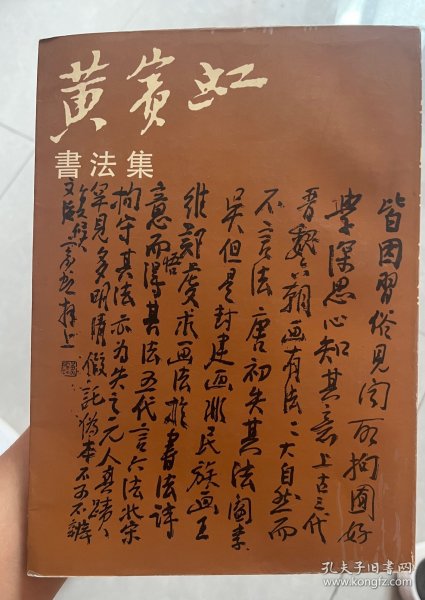 黄賓虹
書法集
皆因習俗見聞所拘囿好
學深思心知其意上古三代
晋魏六朝画有法〻大自然而
不言法唐初失其法閻李
吳但是封建画非民族画王
維鄭虔求画法於書法詩
意而悟得其法五代言六法北宋
拘守其法亦为失之元人真蹟
罕見多明清假託偽本不可不辨
文安賓虹拜上
孔夫子旧书网
www.kongfz.com